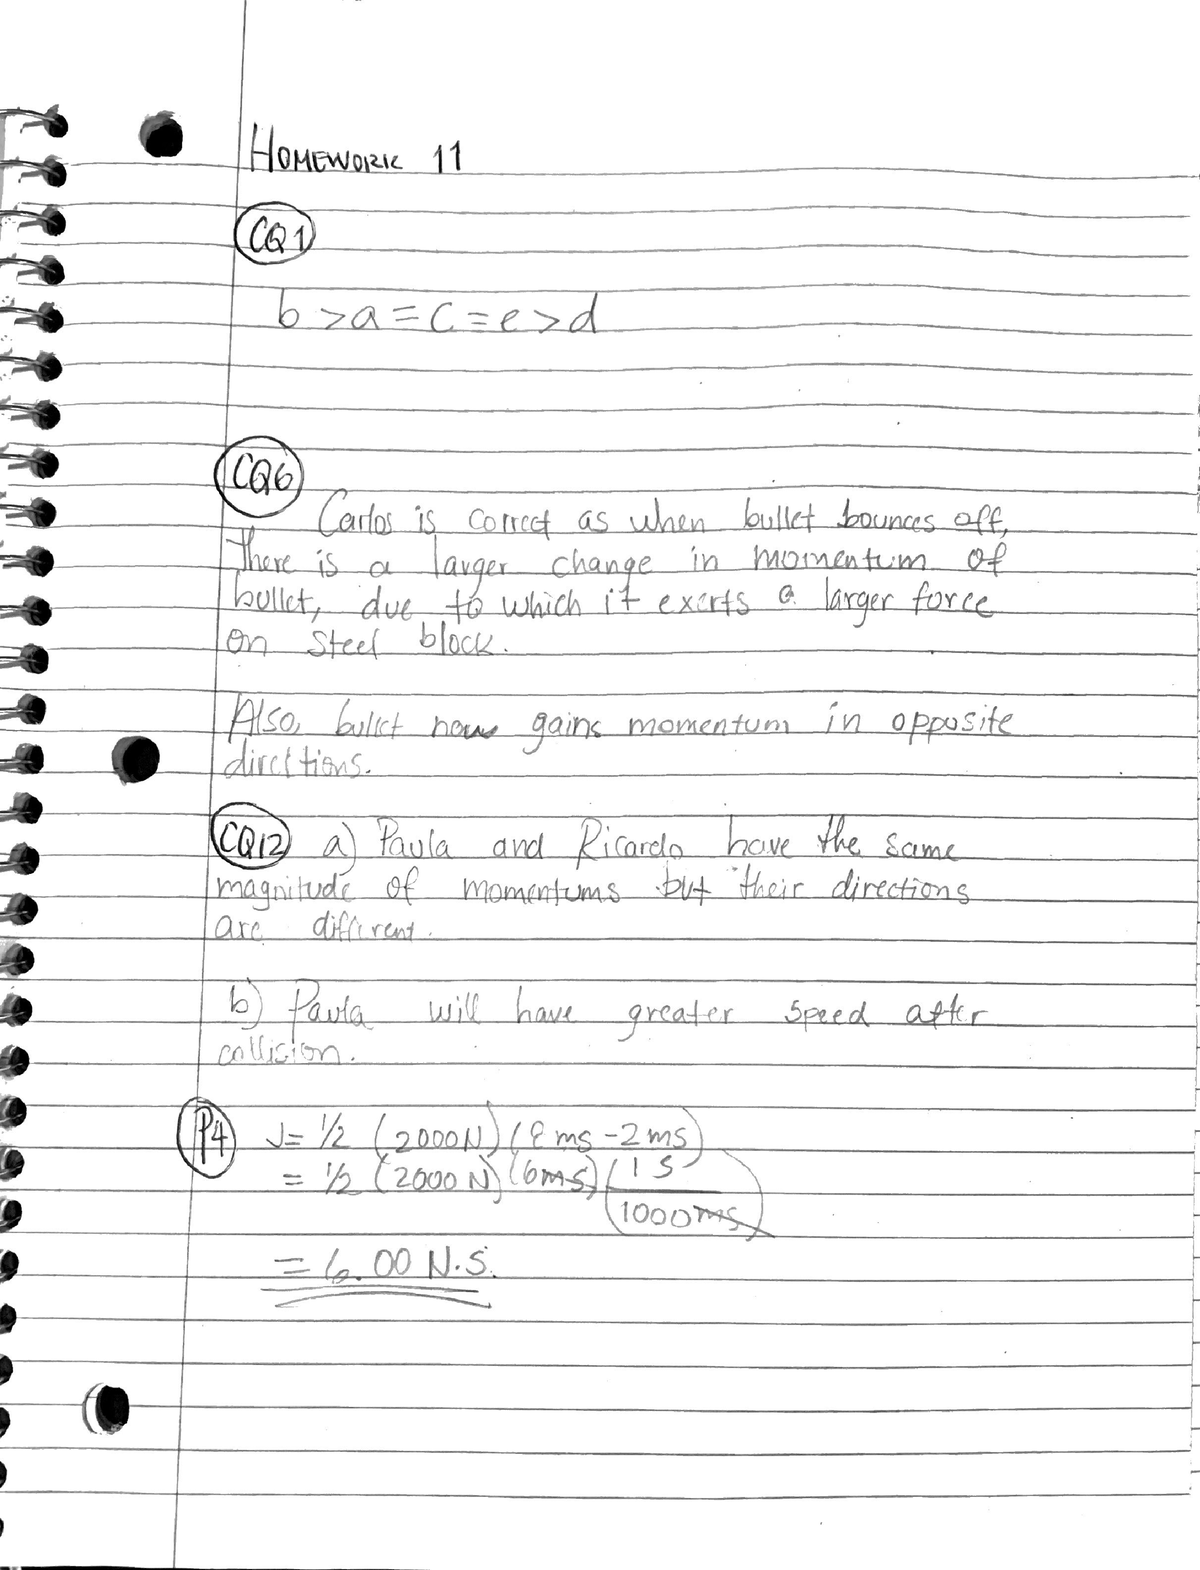 HOMEWORK 11
CQ1
b > a = c = e > d
CQ6
Carlos is correct as when bullet bounces off,
There is a larger change in momentum of
bullet, due to which it exerts a larger force
on steel block.
Also, bullet now gains momentum in opposite
directions.
CQ12 a) Paula and Ricardo have the same
magnitude of momentums but their directions
are different.
b) Paula will have greater speed after
collision.
P4 J = 1/2 (2000N) (8ms - 2ms)
= 1/2 (2000 N) (6ms) (1 S
1000ms)
= 6.00 N.S.